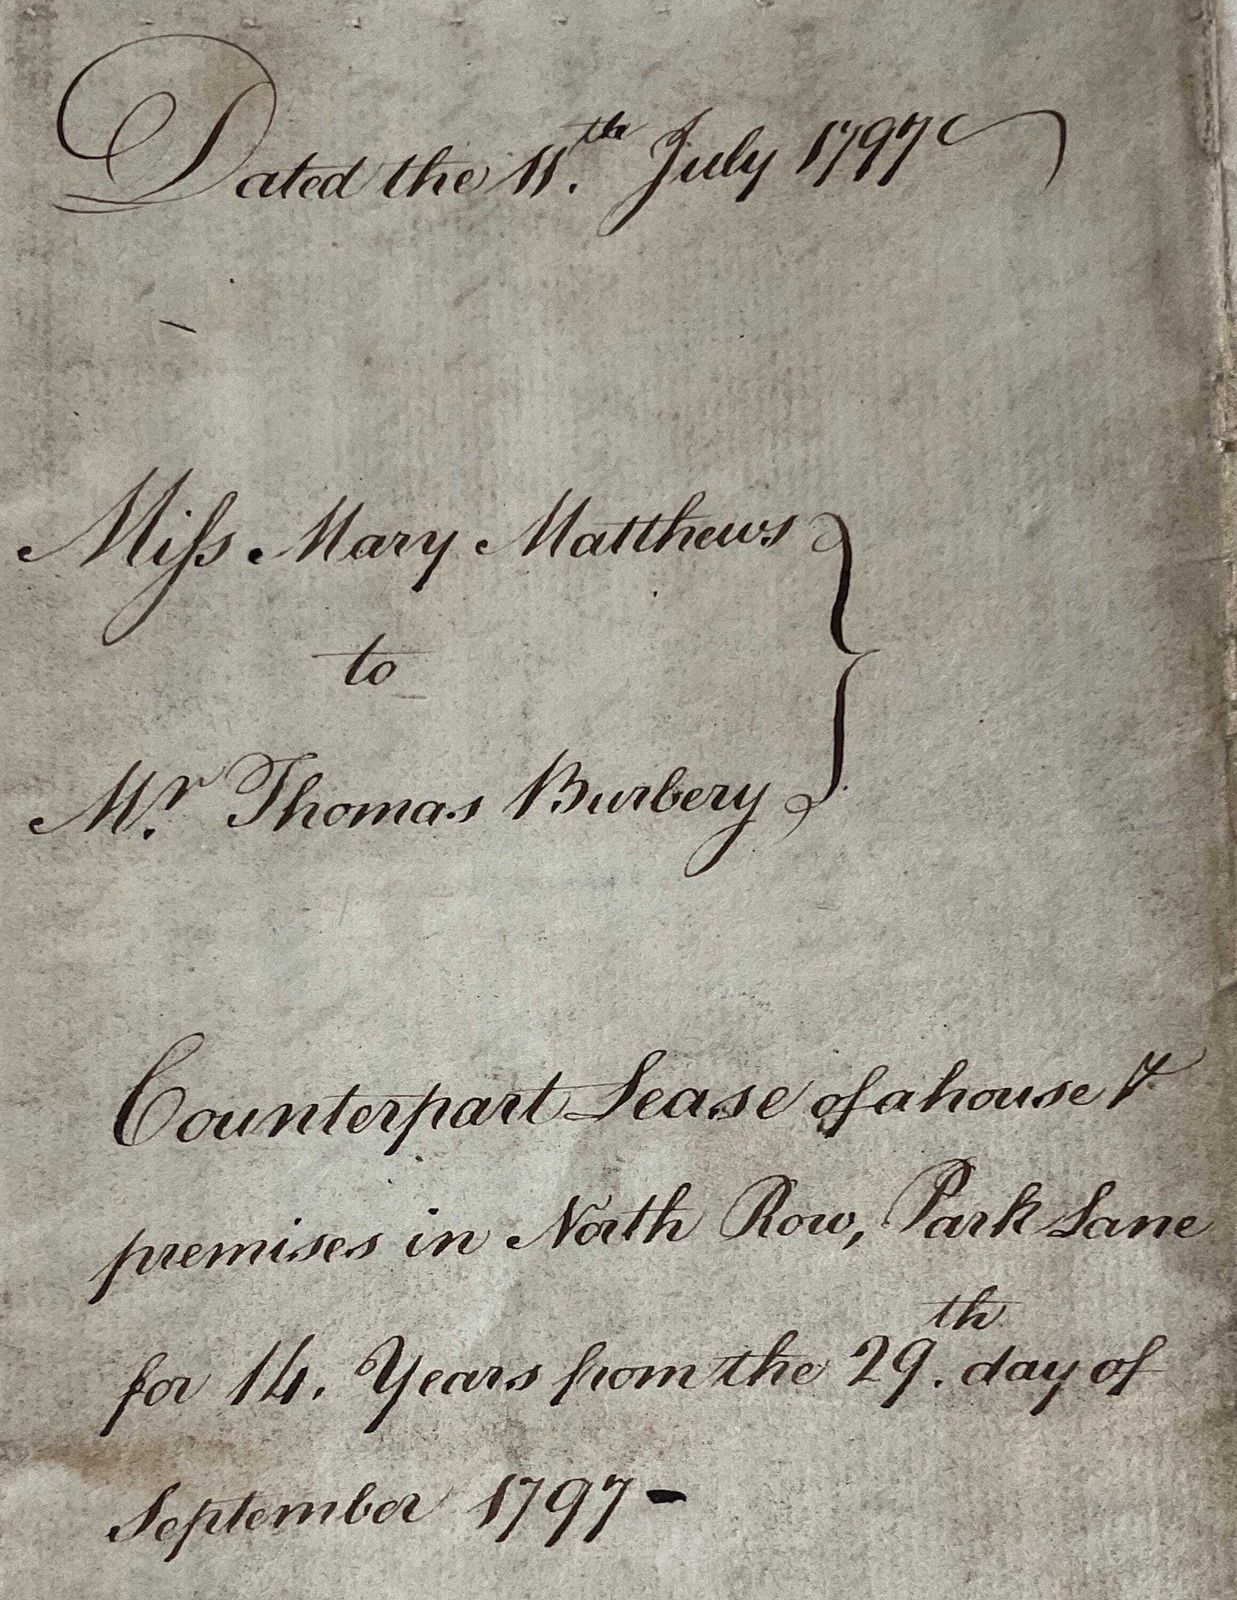 Dated the 11.th July 1797
Miſs Mary Matthews
to
Mr. Thomas Burbery
Counterpart Lease of a house &
premises in North Row, Park Lane
for 14. Years from the 29.th day of
September 1797 -